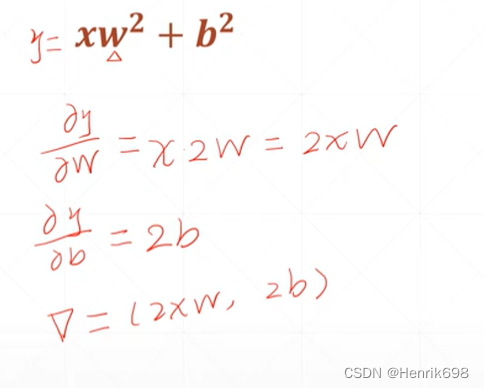 y= xw² + b²
△
∂y/∂w = x 2w = 2xw
∂y/∂b = 2b
∇= (2xw, 2b)
CSDN @Henrik698